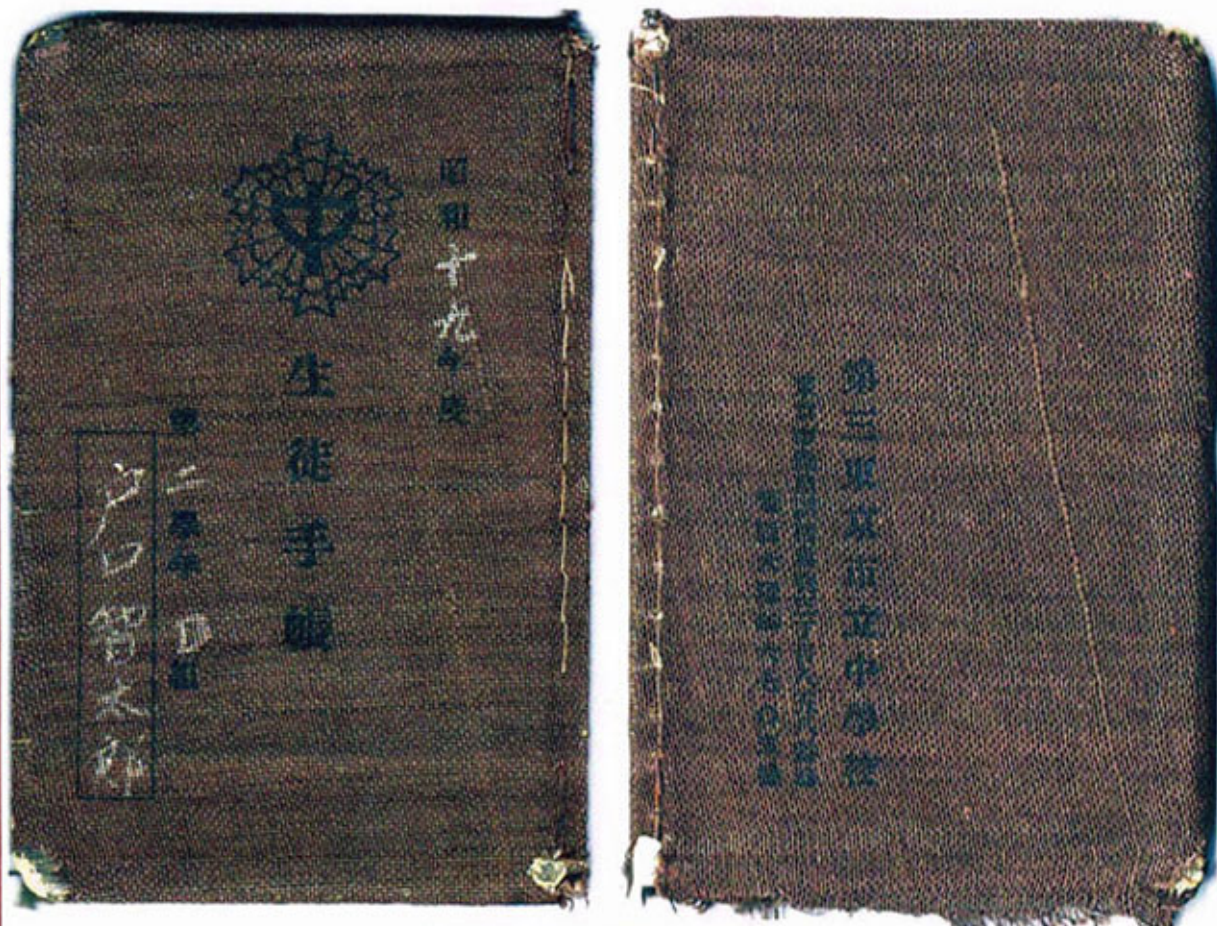 昭和十九年度
生徒手帳
第二學年 四組
戸口智太郎
第三東京市立中學校